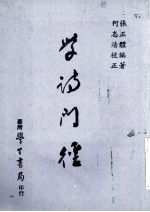 張正體編著
何志浩校正
学詩門徑
臺灣學生書局印行